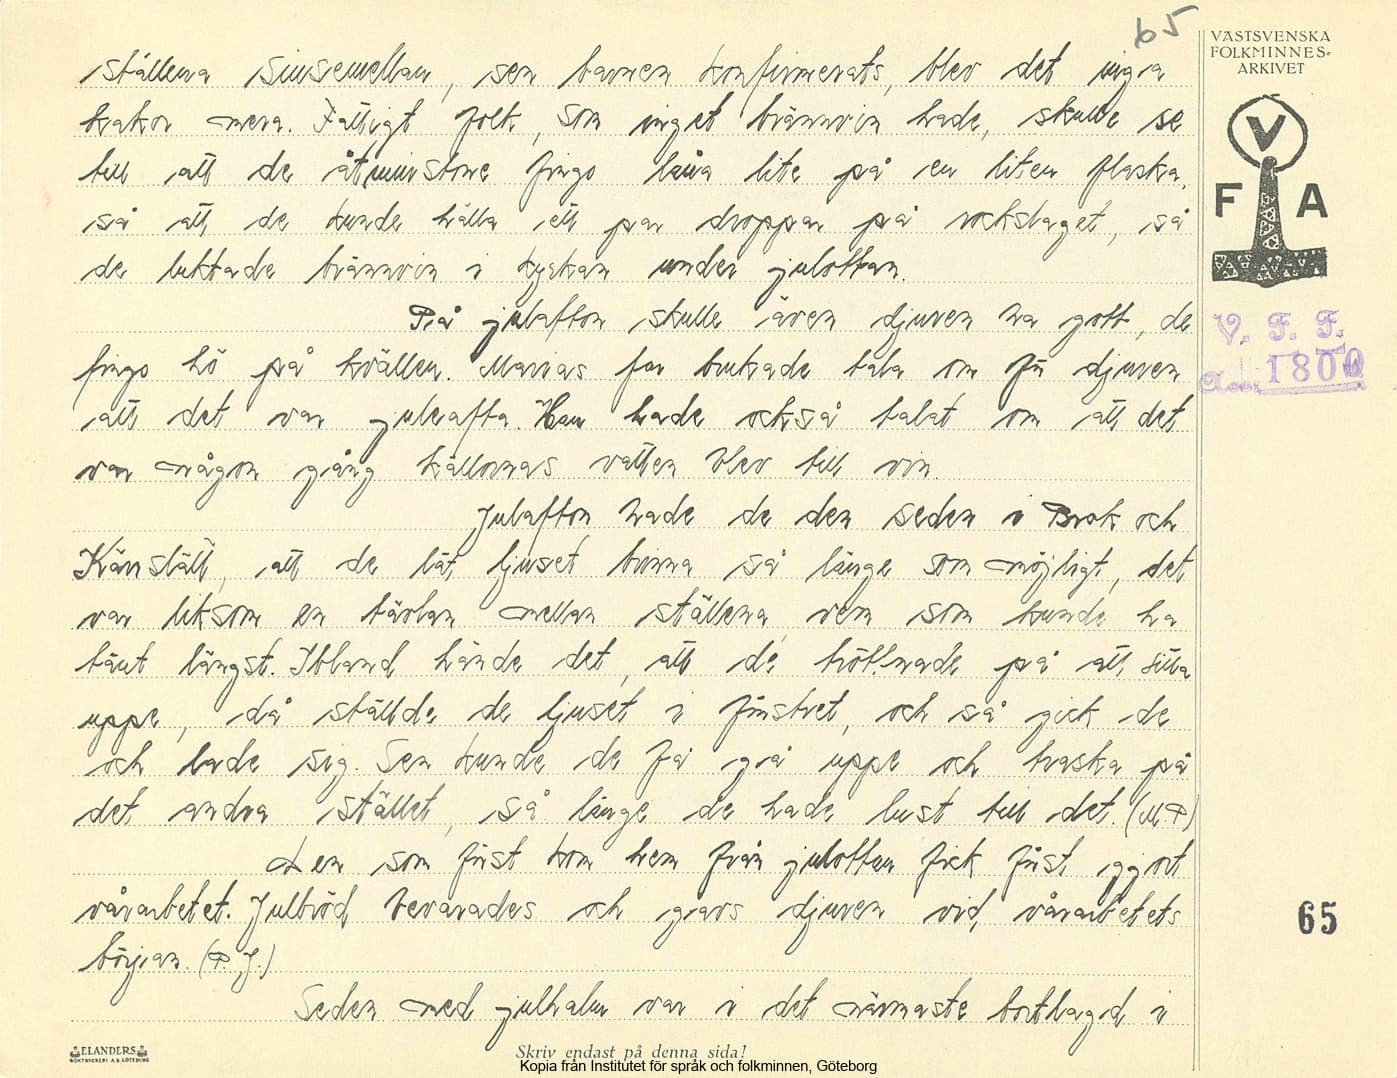 65
VÄSTSVENSKA
FOLKMINNES-
ARKIVET
V
F A
V. F. F.
Acc. 1800
ställena sinsemellan, sen barnen konfirmerats, blev det inga
kakor mera. Fattigt folk, som inget brännvin hade, skulle se
till att de åtminstone fingo låna lite på en liten flaska,
så att de kunde hälla ett par droppar på rockslaget, så
de luktade brännvin i kyrkan under julottan.
På julafton skulle även djuren ha gott, de
fingo hö på kvällen. Marias far brukade tala om för djuren
att det var juleafta. Han hade också talat om att det
var någon gång källornas vatten blev till vin.
Julafton hade de den seden i Brok och
Kärrslätt, att de lät ljuset brinna så länge som möjligt, det
var liksom en tävlan mellan ställena vem som kunde ha
tänt längst. Ibland hände det, att de tröttnade på att sitta
uppe, då ställde de ljuset i fönstret, och så gick de
och lade sig. Sen kunde de få gå uppe och traska på
det andra stället, så länge de hade lust till det. (M.P)
Den som först kom hem från julottan fick först gjort
vårarbetet. Julbröd bevarades och gavs djuren vid vårarbetets
början. (P. J.)
Seden med julhalm var i det närmaste bortlagd i
65
ELANDERS
BOKTRYCKERI A.B. GÖTEBORG
Skriv endast på denna sida!
Kopia från Institutet för språk och folkminnen, Göteborg